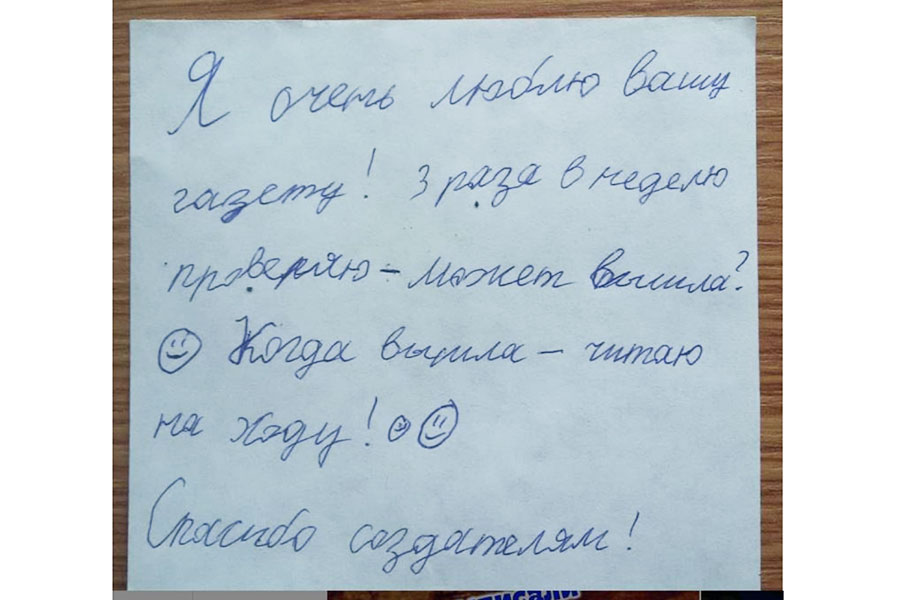 Я очень люблю вашу
газету! 3 раза в неделю
проверяю - может вышла?
☺ Когда вышла - читаю
на ходу! ☺☺
Спасибо создателям!
писали